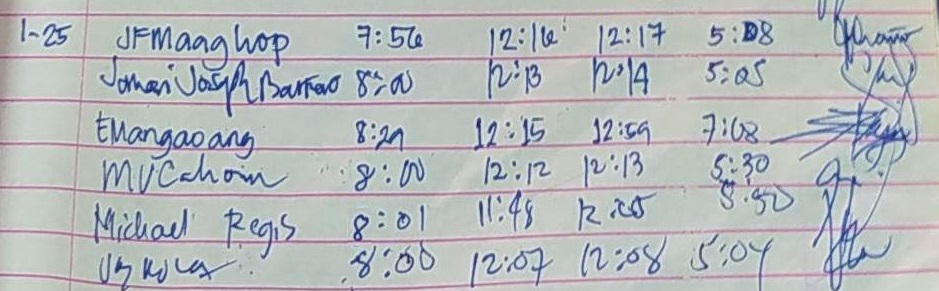 1-25 JFMaaghop 7:56 12:16 12:17 5:08
Jomari Joseph 8:00 12:13 12:14 5:05
EMangaoang 8:29 12:15 12:59 7:08
MVCahoin 8:00 12:12 12:13 5:30
Michael Regis 8:01 11:48
8:00 12:07 12:08 5:04